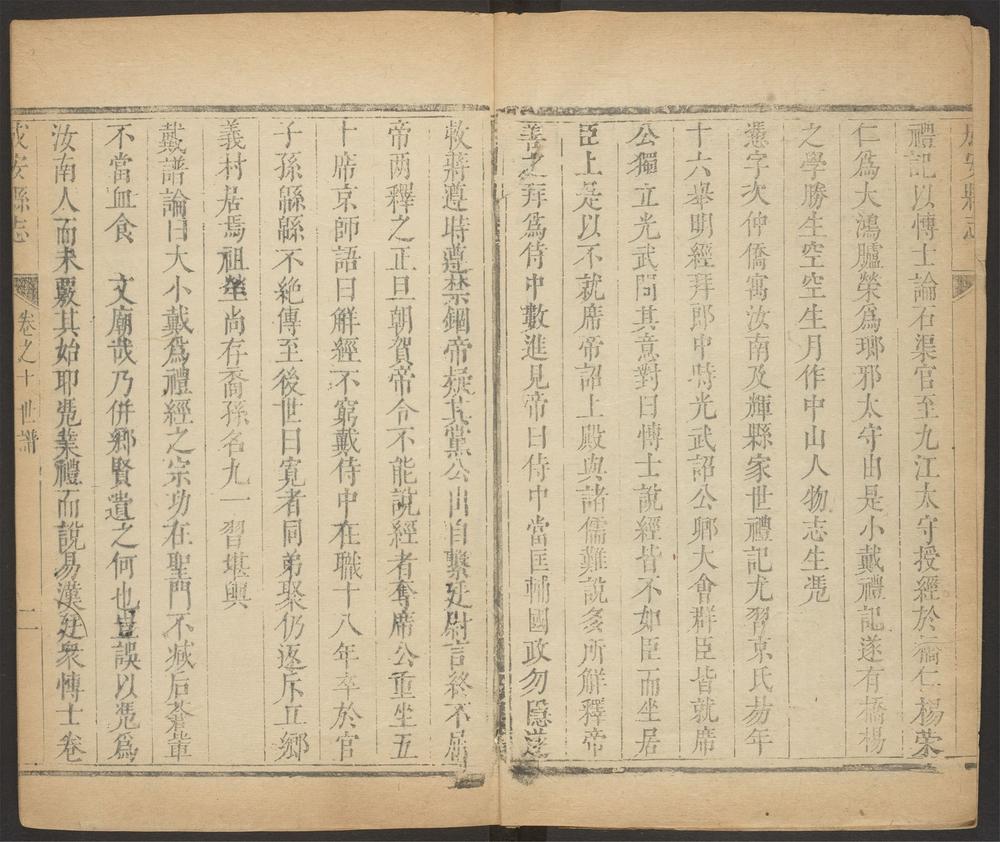 成安縣志
禮記以博士論石渠官至九江太守授經於橋仁楊榮
仁為大鴻臚榮為瑯邪太守由是小戴禮記遂有橋楊
之學勝生空空生月作中山人物志生憑
憑字次仲僑寓汝南及輝縣家世禮記尤習京氏易年
十六舉明經拜郎中時光武詔公卿大會群臣皆就席
公獨立光武問其意對曰博士說經皆不如臣而坐居
臣上是以不就席帝詔上殿與諸儒難說多所解釋帝
善之拜為侍中數進見帝曰侍中當匡輔國政勿隱遂
敕蔣遵時遵禁錮帝疑其黨公出自繫廷尉言終不屈
帝两釋之正旦朝賀帝令不能說經者奪席公重坐五
十席京師語曰解經不窮戴侍中在職十八年卒於官
子孫緜緜不絶傳至後世曰寬者同弟聚仍返斥丘鄉
義村居焉祖塋尚存裔孫名九一　習堪輿
戴譜論曰大小戴為禮經之宗功在聖門不减后蒼軰
不當血食　文廟哉乃併鄉賢遺之何也豈誤以憑為
汝南人而未覈其始耶憑業禮而說易漢廷衆博士卷
成安縣志　卷之十　世譜　二